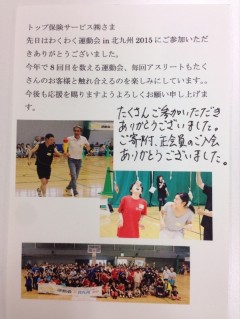 トップ保険サービス㈱さま
先日はわくわく運動会 in 北九州 2015 にご参加いただ
きありがとうございました。
今年で8回目を数える運動会、毎回アスリートもたく
さんのお客様と触れ合えるのを楽しみにしています。
今後も応援を賜りますようよろしくお願い申し上げま
す。
たくさんご参加いただき
ありがとうございました。
ご寄附、正会員のご入会
ありがとうございました。